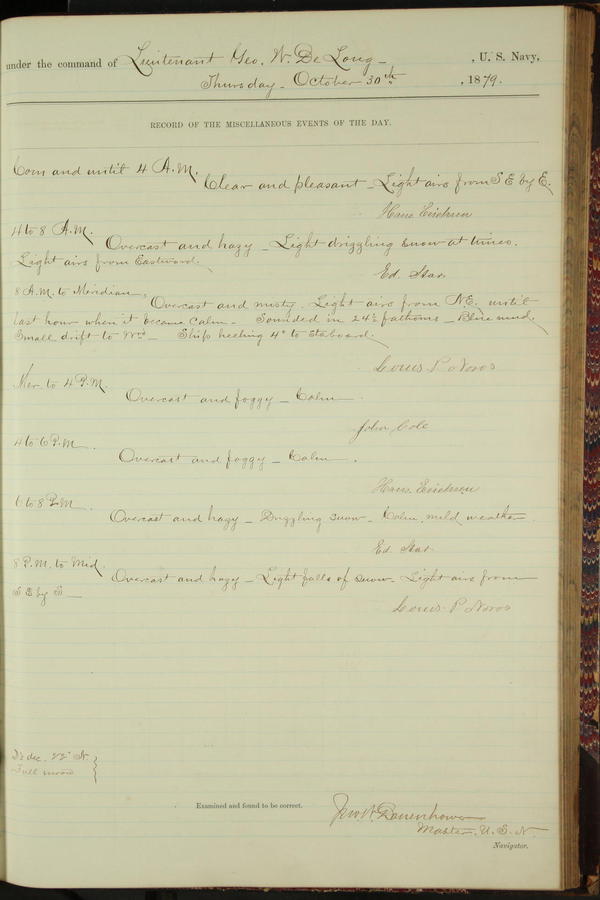 under the command of Lieutenant Geo. W. De Long , U. S. Navy,
Thursday - October 30th , 1879.
RECORD OF THE MISCELLANEOUS EVENTS OF THE DAY.
Com and until 4 A.M.
Clear and pleasant - Light airs from SE by E.
Hans Erichsen
4 to 8 A.M.
Overcast and hazy - Light drizzling snow at times.
Light airs from Eastward.
Ed. Star.
8 A.M. to Meridian
Overcast and misty. Light airs from NE. until
last hour when it became calm - Sounded in 24½ fathoms - Blue mud.
Small drift to - Ship heeling 4° to Staboard.
Louis P. Noros
Mer. to 4 P.M.
Overcast and foggy - Calm
John Cole
4 to 6 P.M.
Overcast and foggy - Calm.
Hans Erichsen
6 to 8 P.M.
Overcast and hazy - Drizzling snow - Calm, mild weather
Ed. Star.
8 P.M. to Mid.
Overcast and hazy - Light falls of snow - Light airs from
SE by S
Louis P. Noros
dec. 22° N.
Full moon
Examined and found to be correct.
Jno. W. Danenhower
Master, U. S. N.
Navigator.